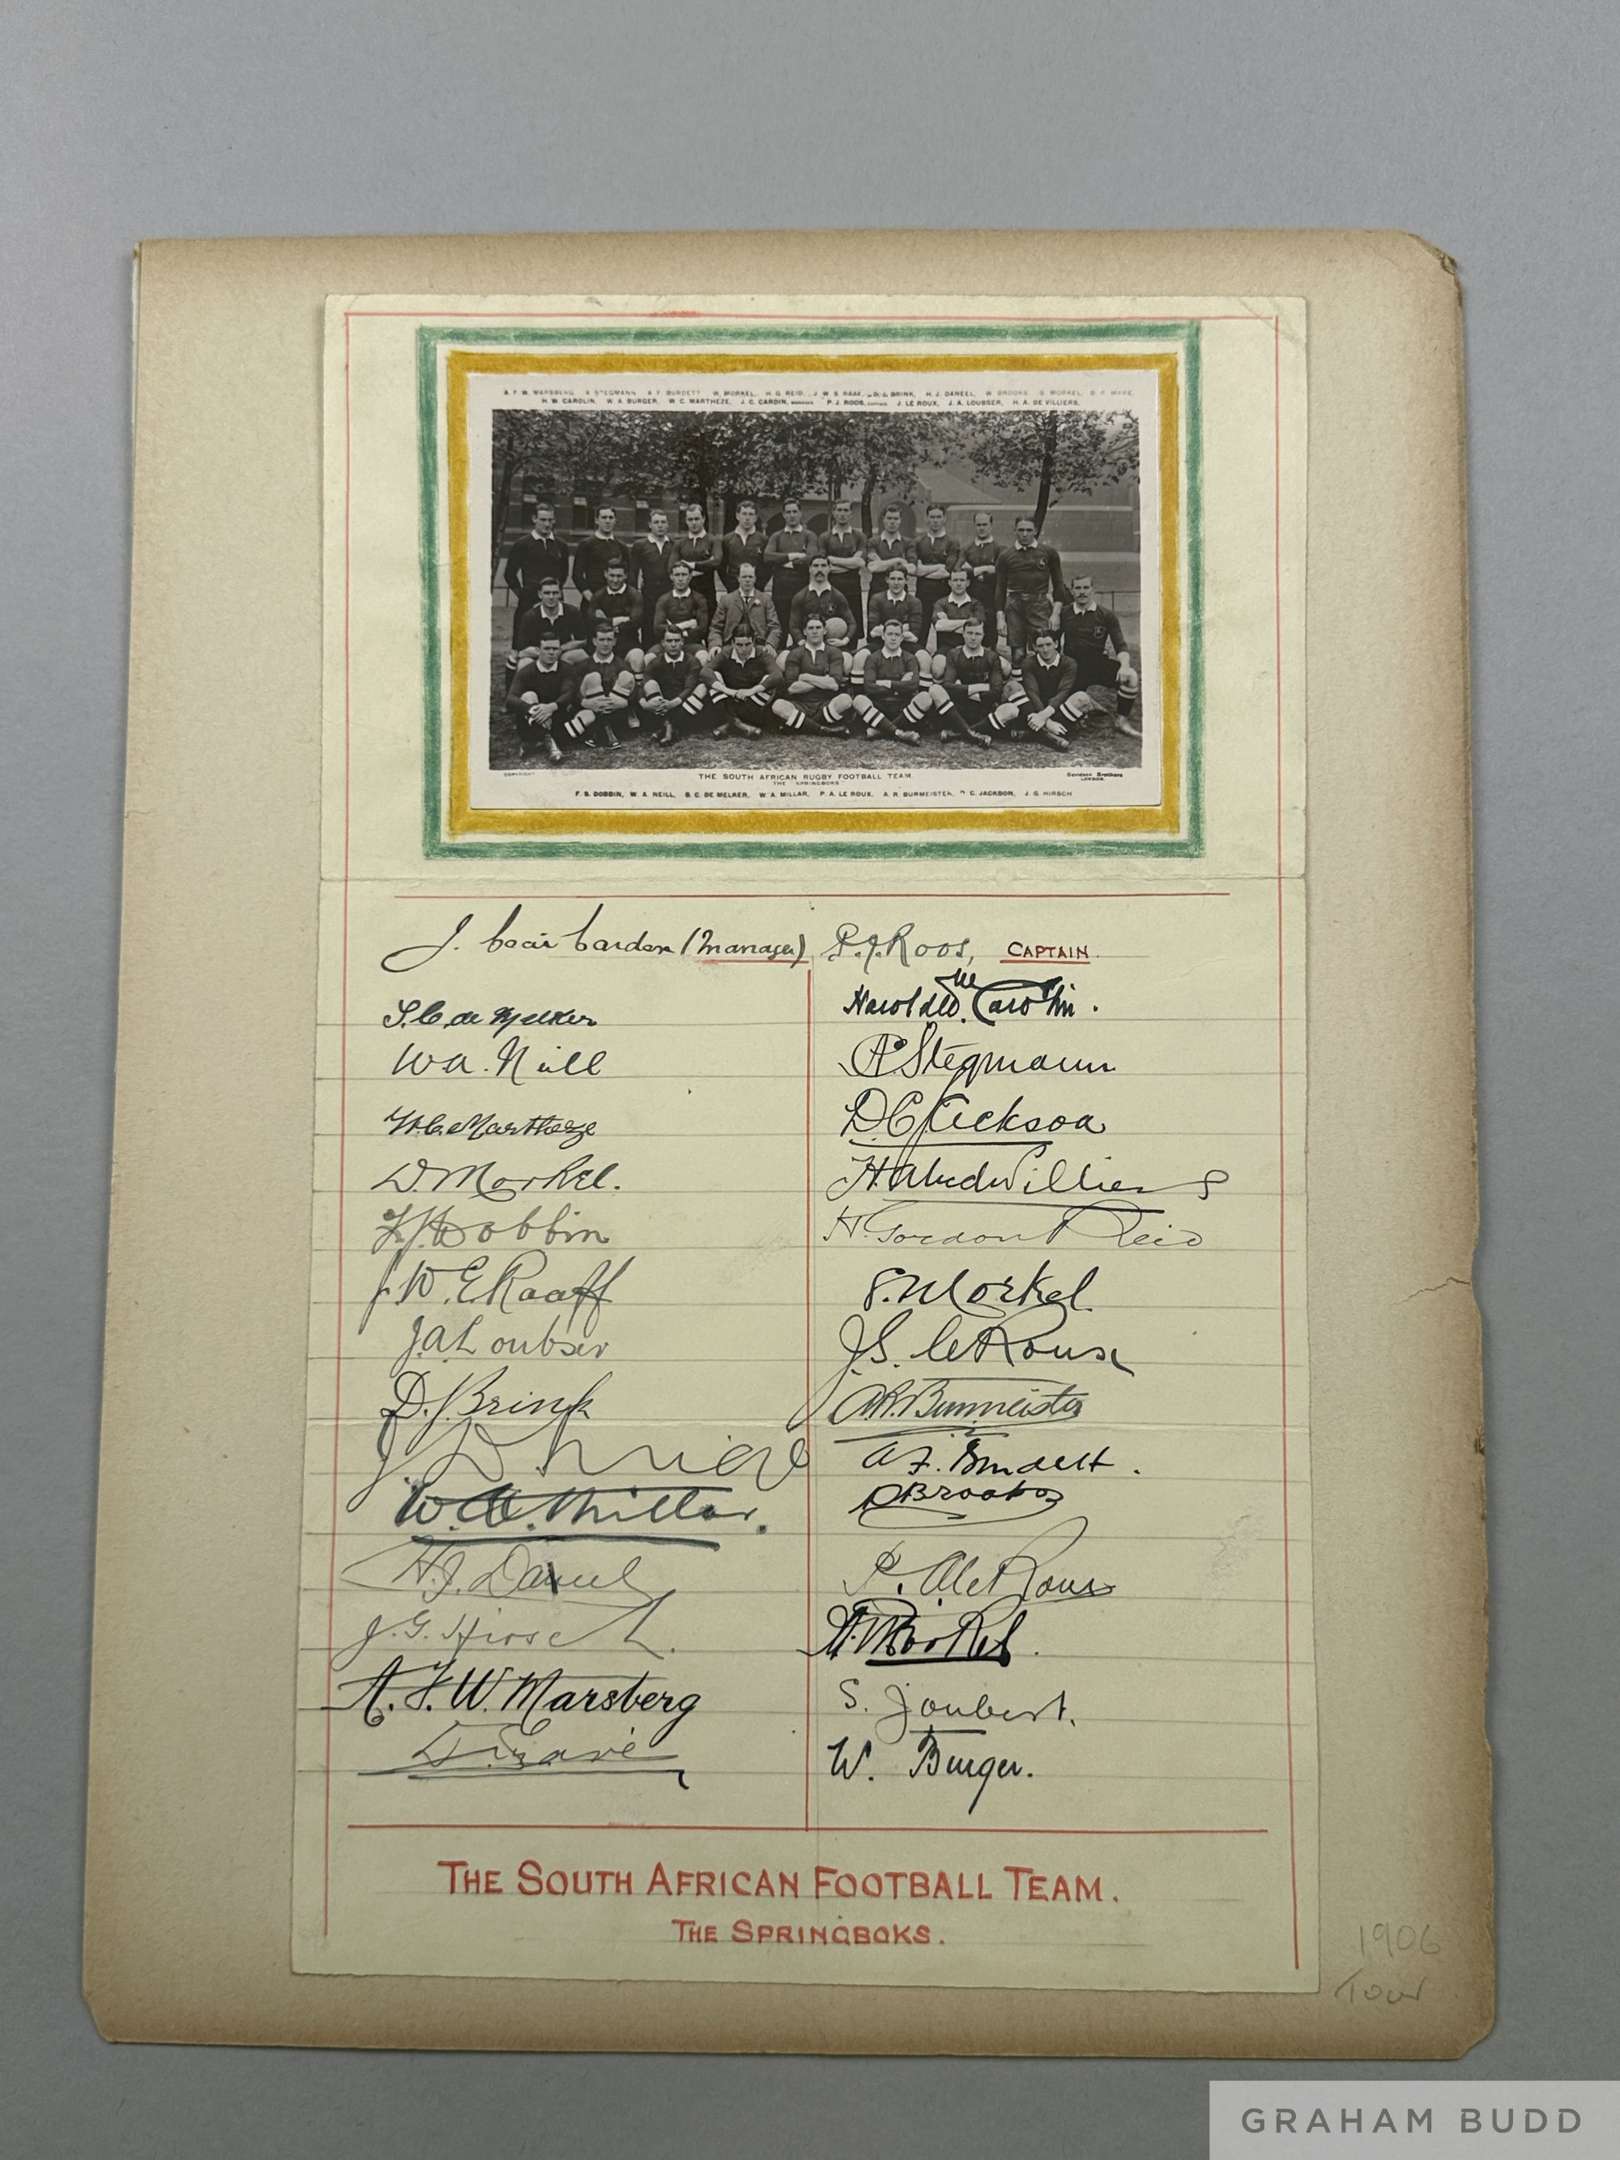 A. F. W. MARSBERG, A. STEGMANN A. F. BURDETT W. MORKEL, H. G. REID, J. W. E. RAAF, D. J. BRINK, H. J. DANEEL, W BROOKS S. MORKEL, D. F. MARE,
H. W. CAROLIN, W. A. BURGER, W. C. MARTHEZE, J. C. CARDIN, MANAGER P. J. ROOS, CAPTAIN J. LE ROUX, J. A. LOUBSER, H. A. DE VILLIERS,
COPYRIGHT
THE SOUTH AFRICAN RUGBY FOOTBALL TEAM.
THE SPRINGBOKS
Davidson Brothers
LONDON.
F. S. DOBBIN, W. A. NEILL, S. C. DE MELKER, W. A. MILLAR, P. A. LE ROUX, A. R. BURMEISTER, D. C. JACKSON, J. G. HIRSCH
J. Carden (Manager) P. J. Roos, CAPTAIN.
S. C. de Melker Harold W. Carolin.
W A. Neill A Stegmann
W. C. Martheze D. C. Jackson
D. Morkel. H. A de Villiers
F. J. Dobbin H. Gordon Reid
J. W. E. Raaff S. Morkel.
J. A. Loubser J. S. le Roux
D. J. Brink A R. Burmeister
A. F. Burdett.
W. A. Millar. D Brooks
H. J. Daneel P. A le Roux
J. G. Hirsch. W. Morkel.
A. F. W. Marsberg S. Joubert.
D. Mare W. Burger.
THE SOUTH AFRICAN FOOTBALL TEAM.
THE SPRINGBOKS.
1906
Tour
GRAHAM BUDD